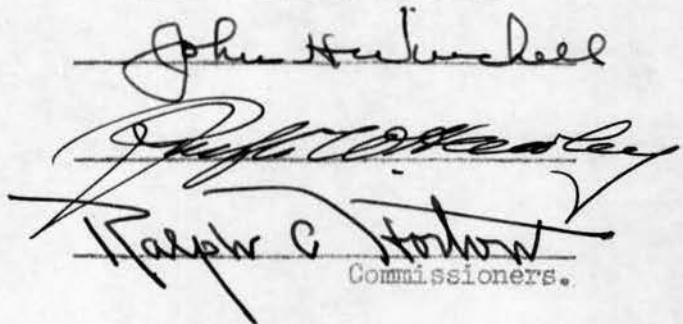 John H Winchell
Joseph W. Hawley
Ralph C Horton
Commissioners.